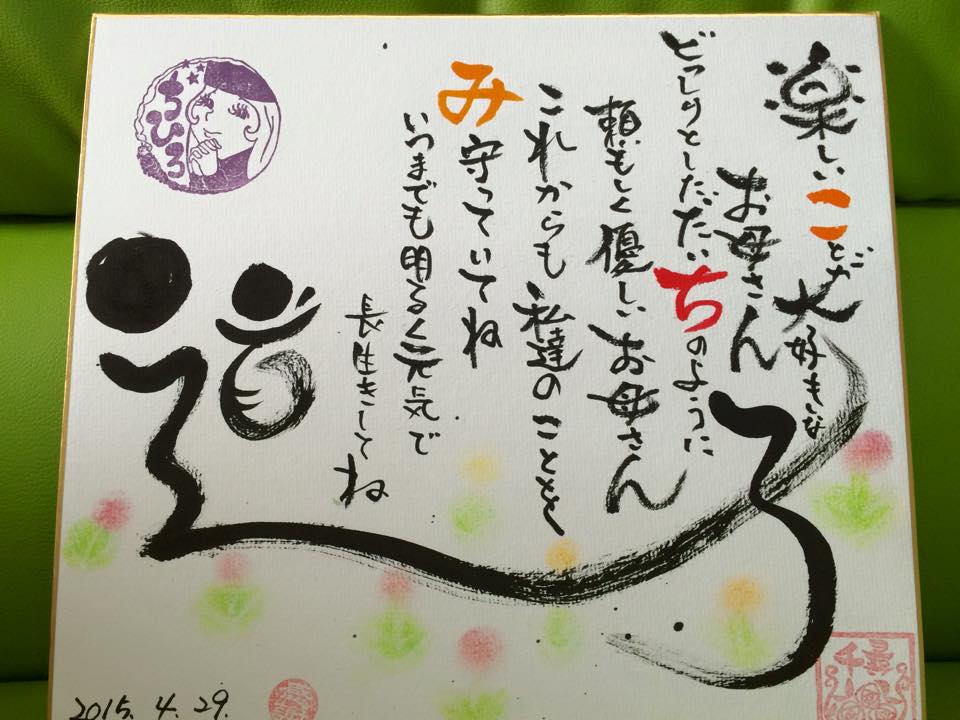 楽しいことが大好きな
お母さん
どっしりとしただいちのように
頼もしく優しいお母さん
これからも私達のことを
み守っていてね
いつまでも明るく元気で
長生きしてね
道子
ちひろ
2015.4.29.
千尋